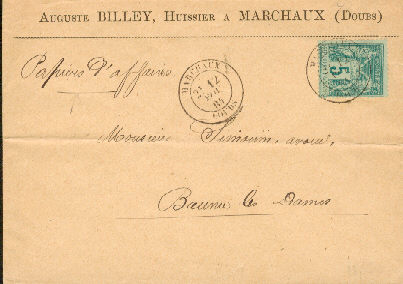 Auguste BILLEY, Huissier a MARCHAUX (Doubs)
Papiers d'affaires
MARCHAUX
12
84
DOUBS
5
Monsieur Simonin, avoué,
Baume les Dames